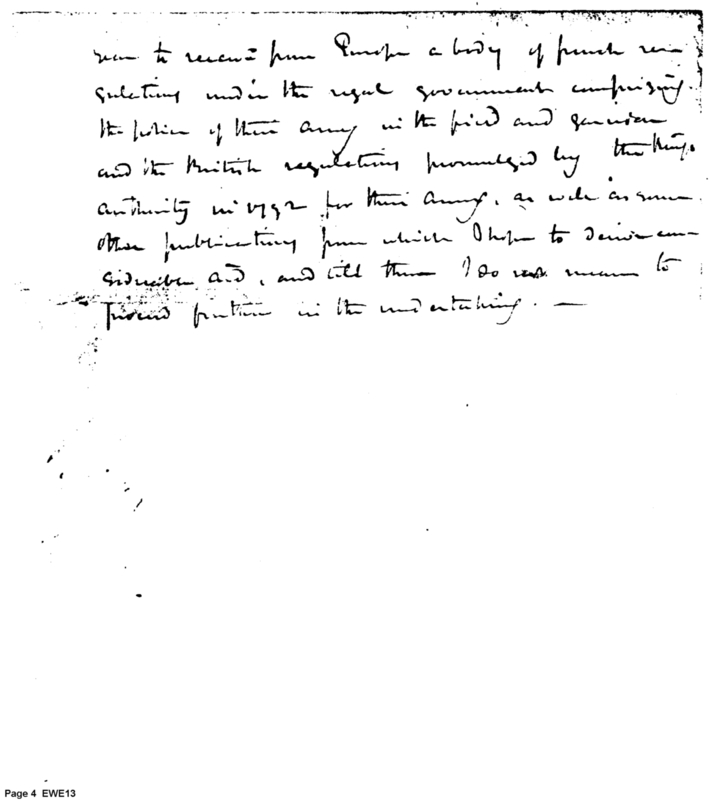 soon to receive from Europe a body of french re-
gulations under the regal government comprizing
the police of their army in the field and garrison
and the British regulations promulged by the Kings
authority in 1792 for their army, as well as some
other publications from which I hope to derive con-
siderable aid, and till then I do not mean to
proceed further in the undertaking. —
Page 4 EWE13